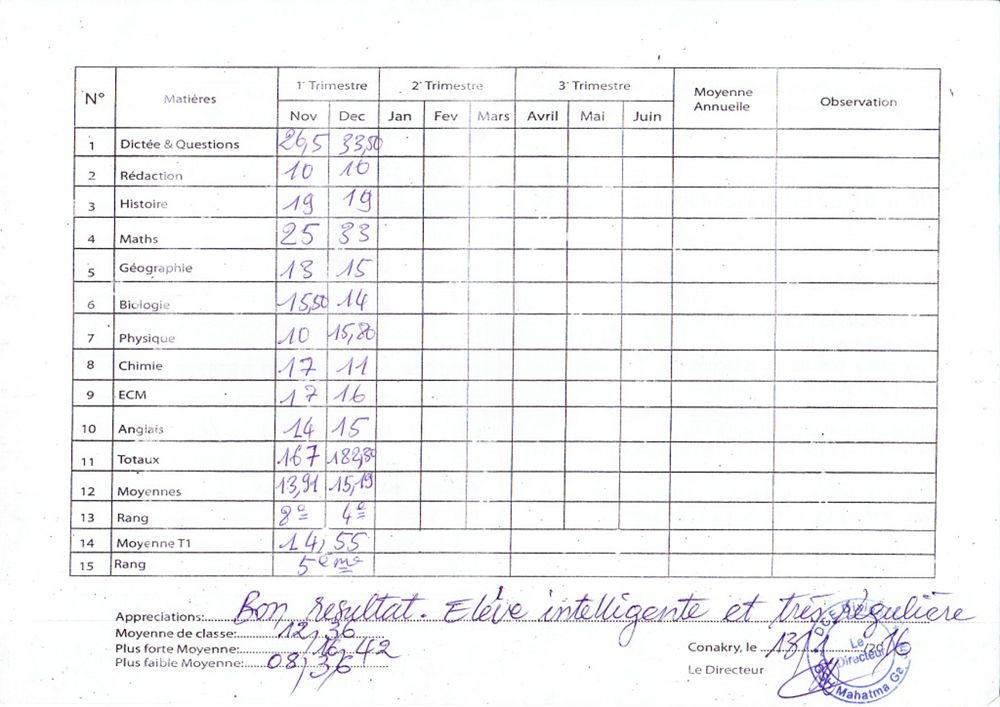 N° Matières 1er Trimestre 2e Trimestre 3e Trimestre Moyenne Annuelle Observation
Nov Dec Jan Fev Mars Avril Mai Juin
1 Dictée & Questions 26,5 33,50
2 Rédaction 10 10
3 Histoire 19 19
4 Maths 25 33
5 Géographie 13 15
6 Biologie 15,50 14
7 Physique 10 15,80
8 Chimie 17 11
9 ECM 17 16
10 Anglais 14 15
11 Totaux 167 182,30
12 Moyennes 13,91 15,19
13 Rang 8e 4e
14 Moyenne T1 14,55
15 Rang 5ème
Appreciations: Bon resultat. Elève intelligente et très régulière
Moyenne de classe: 12,36
Plus forte Moyenne: 16,42
Plus faible Moyenne: 08,36
Conakry, le 13/1/2016
Le Directeur
Le Directeur
Mahatma Ga